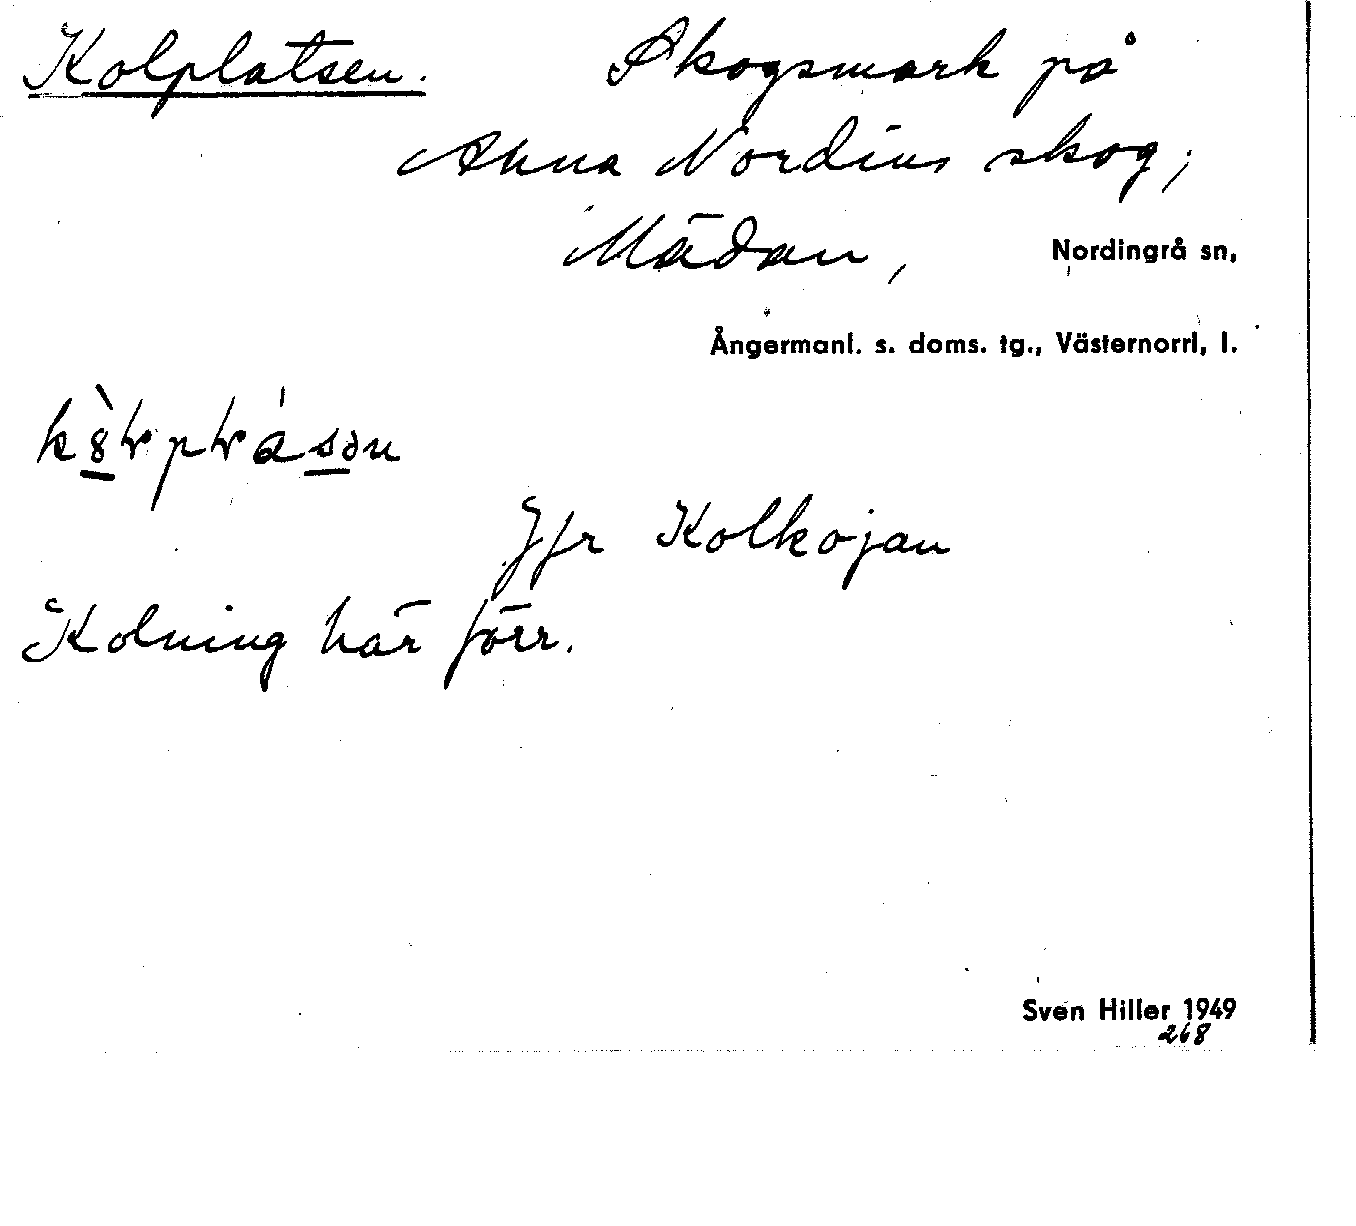 Kolplatsen. Skogsmark på
Anna Nordins skog,
Mädan, Nordingrå sn,
Ångermanl. s. doms. tg., Västernorrl, l.
Jfr Kolkojan
Kolning här förr.
Sven Hiller 1949
268